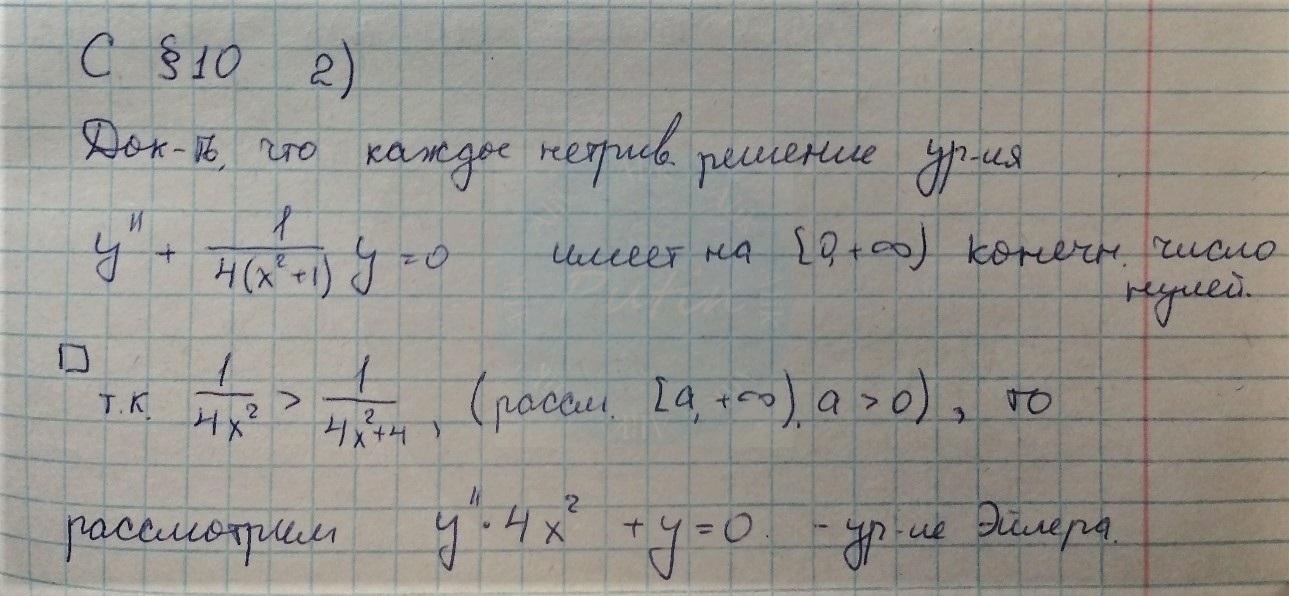 С §10 2)
Док-ть, что каждое нетрив. решение ур-ия
y'' + 1/(4(x²+1)) y = 0 имеет на [0, +∞) конечн. число
нулей.
□
т.к. 1/(4x²) > 1/(4x²+4), (рассм. [a, +∞), a > 0), то
рассмотрим y'' · 4x² + y = 0. - ур-ие Эйлера.